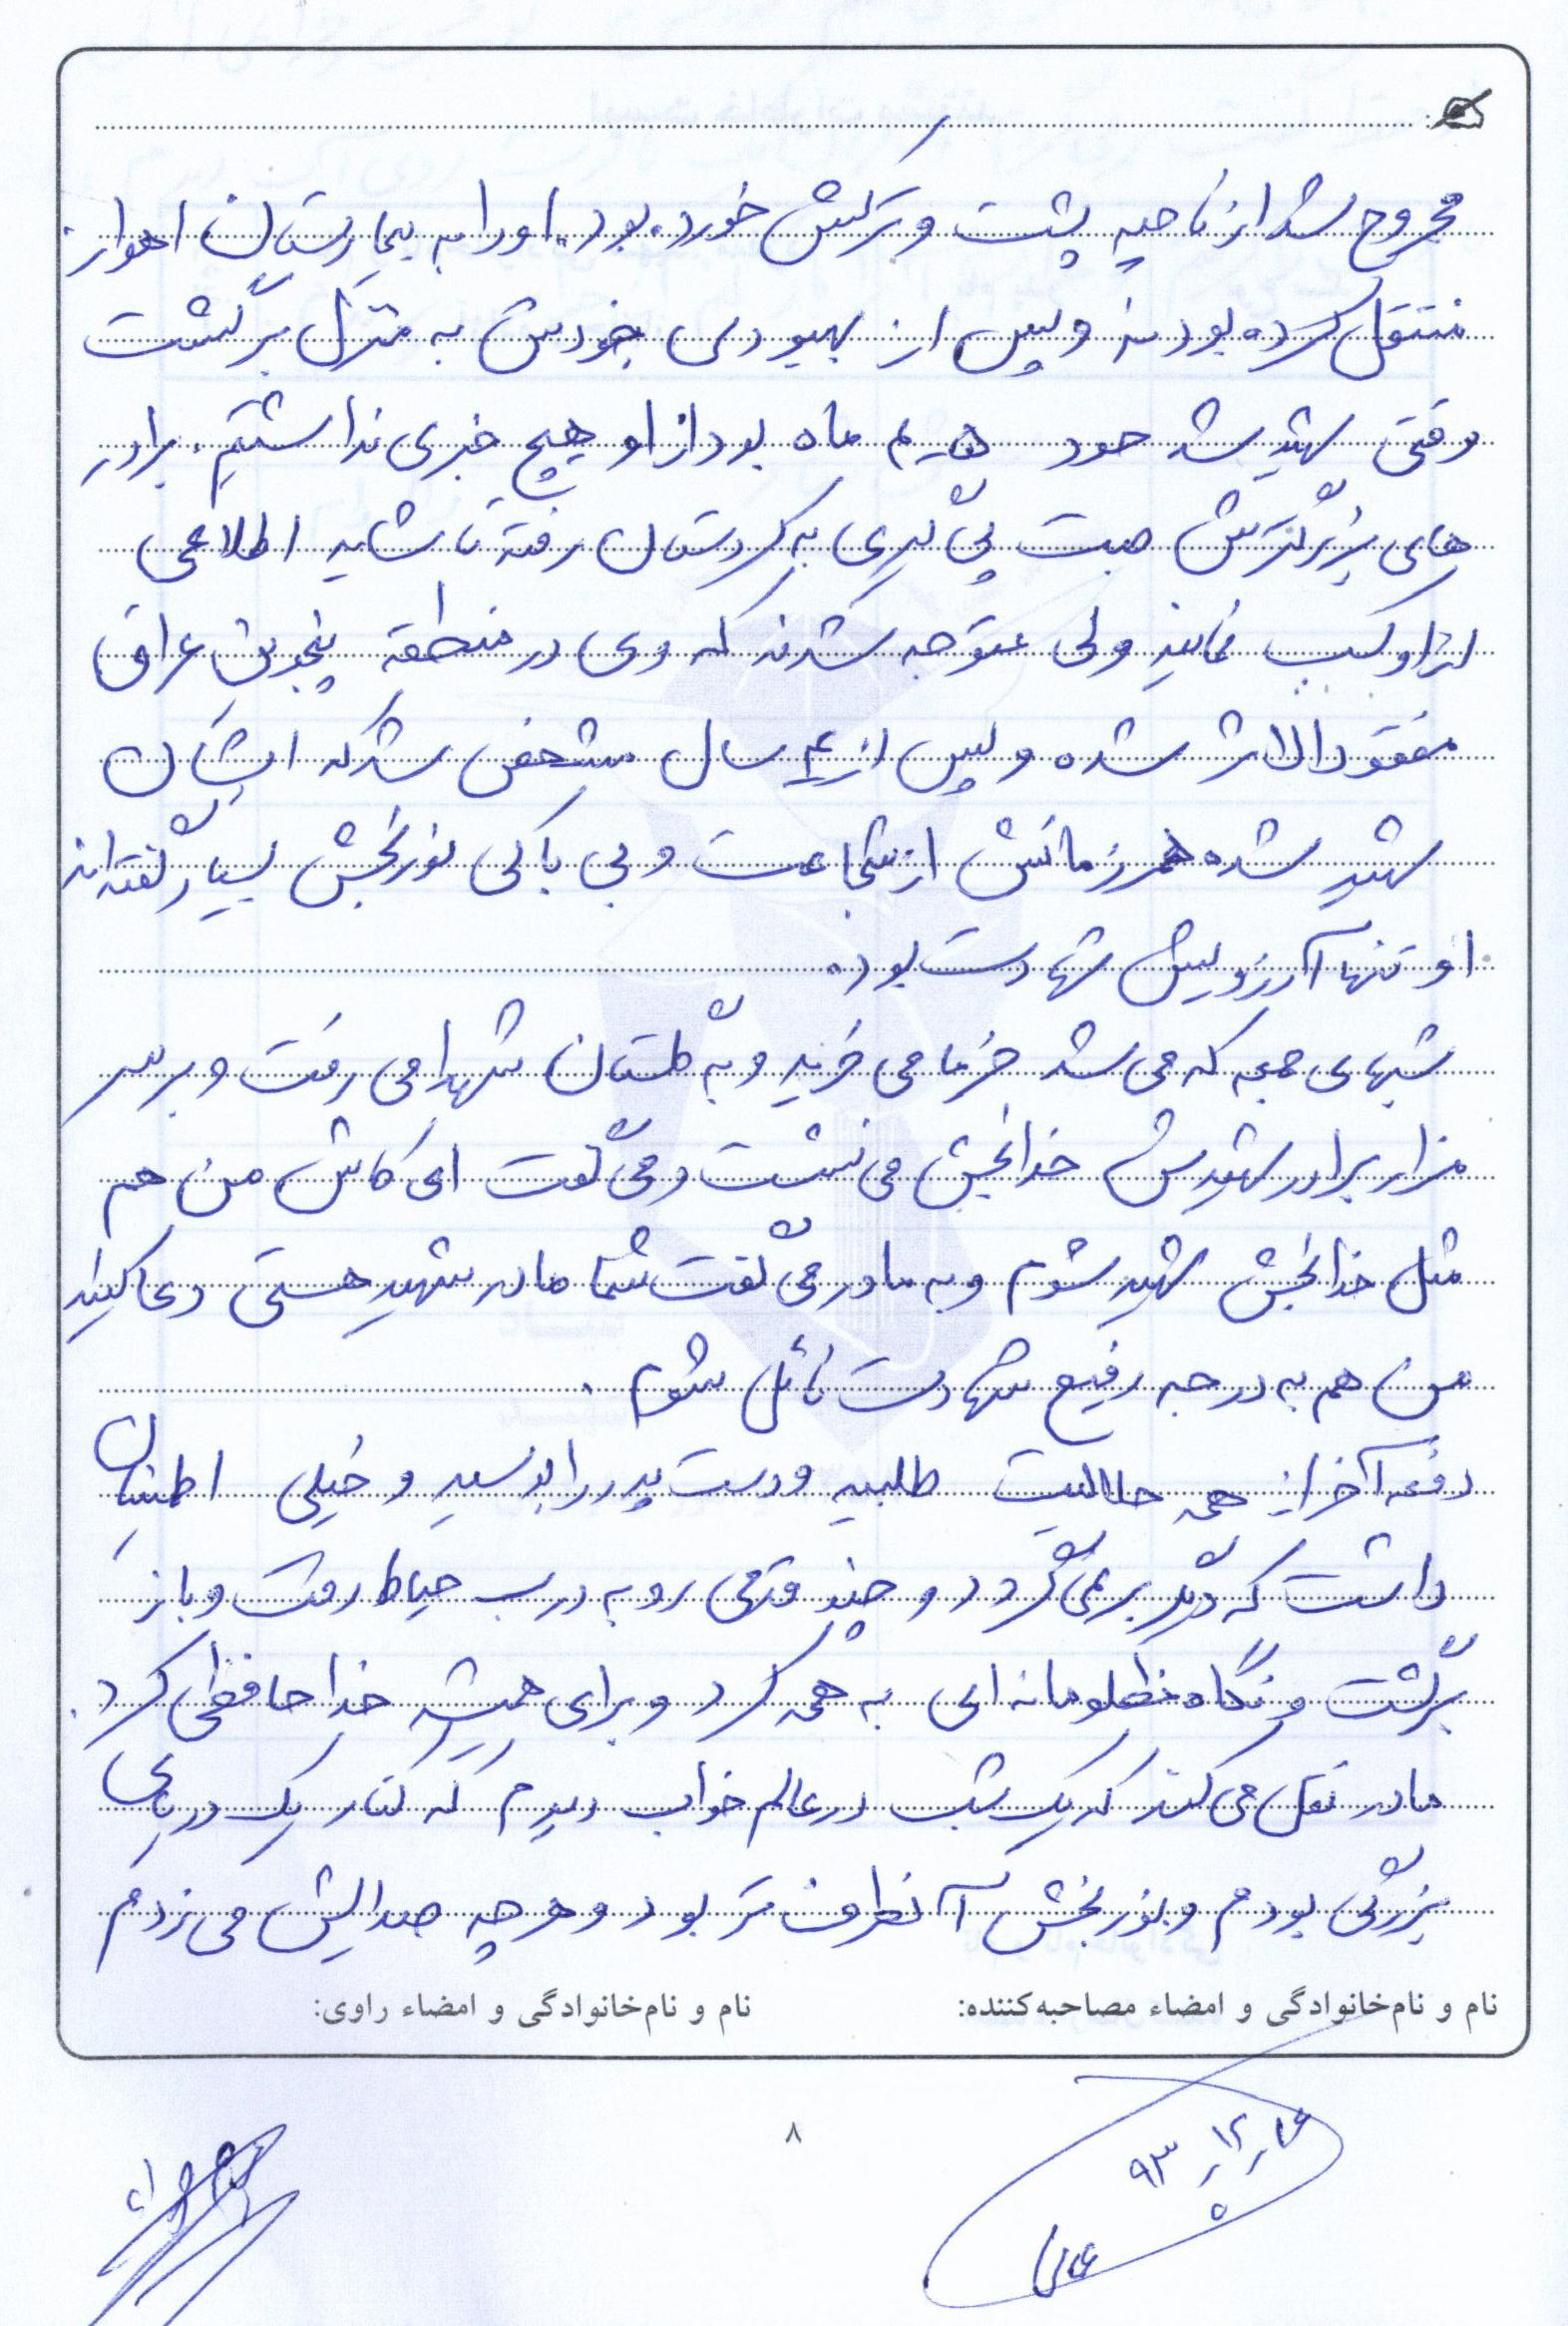 مجروح شد از ناحیه پشت و ترکش خورده بود. او را به بیمارستان اهواز
منتقل کرده بودند و پس از بهبودی خودش به منزل برگشت
وقتی شهید شد حدود ماه بود از او هیچ خبری نداشتیم. برادر
های بزرگترش جهت پی گیری به کردستان رفته تا شاید اطلاعی
از او کسب نمایند ولی متوجه شدند که وی در منطقه پنجوین عراق
مفقودالاثر شده و پس از سال مشخص شد که ایشان
شهید شده همرزمانش از شجاعت و بی باکی نوربخش بسیار گفته اند
او تنها آرزویش شهادت بود.
شبهای جمعه که می شد خرما می خرید و به گلستان شهدا می رفت و بر سر
مزار برادر شهیدش خدابخش می نشست و می گفت ای کاش من هم
مثل خدابخش شهید شوم و به مادر می گفت شما مادر شهید هستی دعا کنید
من هم به درجه رفیع شهادت نائل شوم.
دفعه آخر از همه حلالیت طلبید و دست پدر را بوسید و خیلی اطمینان
داشت که دیگر برنمی گردد و چند قدمی رو به درب حیاط رفت و باز
برگشت و نگاه مظلومانه ای به همه کرد و برای همیشه خداحافظی کرد.
مادر نقل می کند که یک شب در عالم خواب دیدم که کنار یک دریای
بزرگی بودم و نوربخش آنطرف تر بود و هر چه صدایش می زدم
نام و نام‌خانوادگی و امضاء مصاحبه‌کننده: نام و نام‌خانوادگی و امضاء راوی:
۸